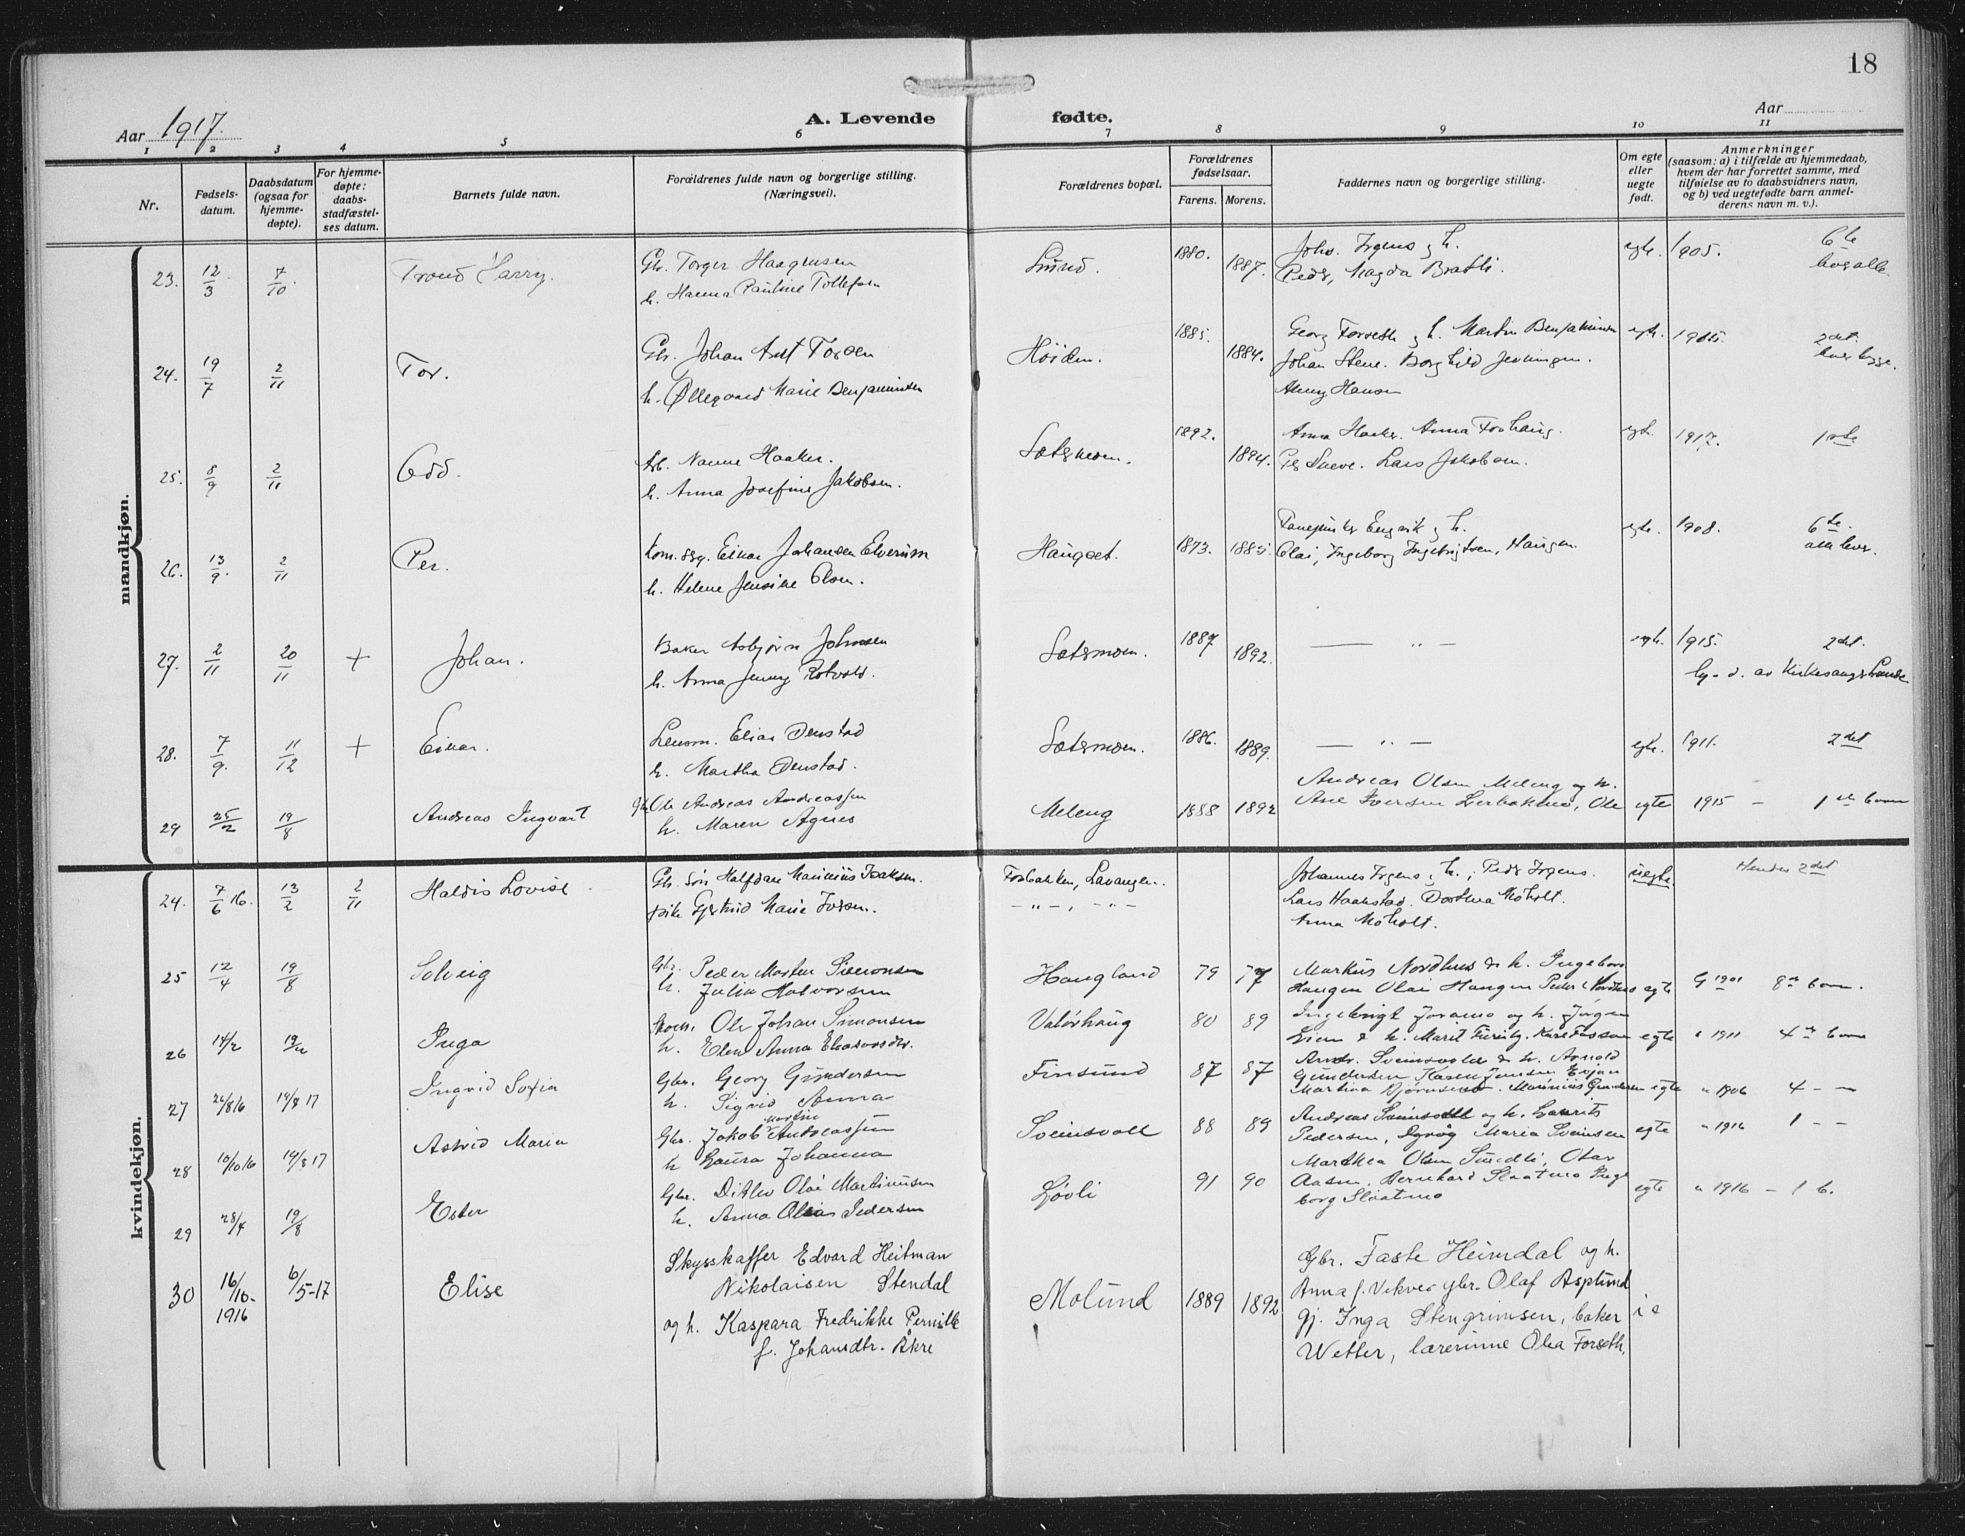 18
Aar 1917.
A. Levende fødte.
Aar
1 2 3 4 5 6 7 8 9 10 11
Nr.
Fødsels-
datum.
Daabsdatum
(ogsaa for
hjemme-
døpte).
For hjemme-
døpte:
daabs-
stadfæstel-
ses datum.
Barnets fulde navn.
Forældrenes fulde navn og borgerlige stilling.
(Næringsvei).
Forældrenes bopæl.
Forældrenes
fødselsaar.
Farens. Morens.
Faddernes navn og borgerlige stilling.
Om egte
eller
uegte
født.
Anmerkninger
(saasom: a) i tilfælde av hjemmedaab,
hvem der har forrettet samme, med
tilføielse av to daabsvidners navn,
og b) ved uegtefødte barn anmel-
derens navn m. v.).
mandkjøn.
23. 12/3 7/10. Trond Harry.
Gbr. Torger Haagensen
h. Hanna Pauline Tollefsen
Lund. 1880. 1887.
Johs. Irgens & h.
Peder, Magda Bratli.
egte. 1905. 6te
24. 19/7 2/11 Tor.
Gbr. Johan Ant Torsen
h. Øllegaard Marie Benjaminsen
Høiden. 1885. 1884.
Georg Forseth & h. Martin Benjaminsen
Johan Stene. Borghild Jenningen.
Hansen
egte. 2det
25. 8/9 2/11 Odd.
Arb. Nanne Haaker.
h. Anna Josefine Jakobsen.
Sætermoen. 1892. 1894.
Anna Haaker. Anna Forhaug.
Lars Jakobsen.
egte. 1917. 1ste
26. 13/9. 2/11 Per.
Kom. serg. Einar Johansen Elverum
h. Helene Jensine Olsen.
Haugset. 1873. 1885.
Engvik & h.
Olai, Ingeborg Ingebrigtsen, Haugen.
egte. 1908. 6te.
alle lever.
27. 2/11 20/11 + Johan.
Baker Asbjørn Johnsen
h. Anna Jenny Rotvold.
Sætermoen. 1887 1892.
— „ —
egte. 1915. 2det.
hj. d. av Kirkesanger
28. 7/9. 11/12 + Einar.
Lensm. Elias Ønstad
h. Martha Ønstad.
Sætermoen. 1886. 1889.
— „ —
egte. 1911. 2det
29 25/2 19/8 Andreas Ingvart
Gbr Ole Andreas Andreassen
h. Maren Agnes
Meleng 1888 1892
Andreas Olsen Meleng og h.
Ane Iversen Lerbakmo, Ole
egte 1915 — 1ste barn
kvindekjøn.
24. 7/6 16. 13/2 2/11 Haldis Lovise.
Gbr. søn Halfdan Marinius Isaksen.
pike Gjertrud Marie Iversen.
Forbakken, Lavangen.
— „ — , — „ —
Johannes Irgens & h., Peder Irgens.
Lars Haakstad. Dorthea Moholt.
Anna Moholt.
uegte. Hendes 2det
25 12/4 19/8 Solveig
Gbr. Peder Morten Simonsen
h. Julia Halvorsen
Haugland 79 77
Markus Nordhus & h. Ingeborg
Haugen Olai Haugen Peder Nordmo
egte G 1901 8de barn.
26 14/2 19/8 Inga
Ole Johan Simonsen
h. Elen Anna
Valørhaug 80 89
Ingebrigt Joramo og h. Jørgen
Lien & h. Marit
egte „ 1911 4de barn
27 26/8 16 19/8 17 Ingrid Sofia
Gbr. Georg Gundersen
h. Sigrid Anna
Finsund 87 87
Andr. Sveinsvoll & h. Arnold
Gundersen Karen Jensen
Martina Bjørnsund. Marinius Gundersen
egte „ 1906 4 — —
28 10/10 16 19/8 17 Astrid Maria
Gbr. Jakob Martin Andreassen
h Laura Johanna
Sveinsvoll 88 89
Andreas Sveinsvoll og h. Laurits
Pedersen, Maria Sveinsen
egte „ 1916 1 — —
29 28/4 19/8 Ester
Gbr. Ditlev Olai Martinusen
h. Anna Olea Pedersen
Løvli 91 90
Marthea Olsen Sundli, Olav
Aasen, Bernhard Slaatmo Inge
borg Slaatmo
egte „ 1916 — 1 b.
30 16/10- 1916 6/5-17 Elise
Skysskaffer Edvard Heitman
Nikolaisen Stendal
og h. Kaspara Fredrikke Pernille
f. Johansdtr. Åkre
Molund 1889 1892
Gbr. Faste Heimdal og h.
Anna f. Vekve gbr. Olaf Asplund
gj. Inga Stengrimsen, baker
Wetter, lærerinne Olea Forseth,